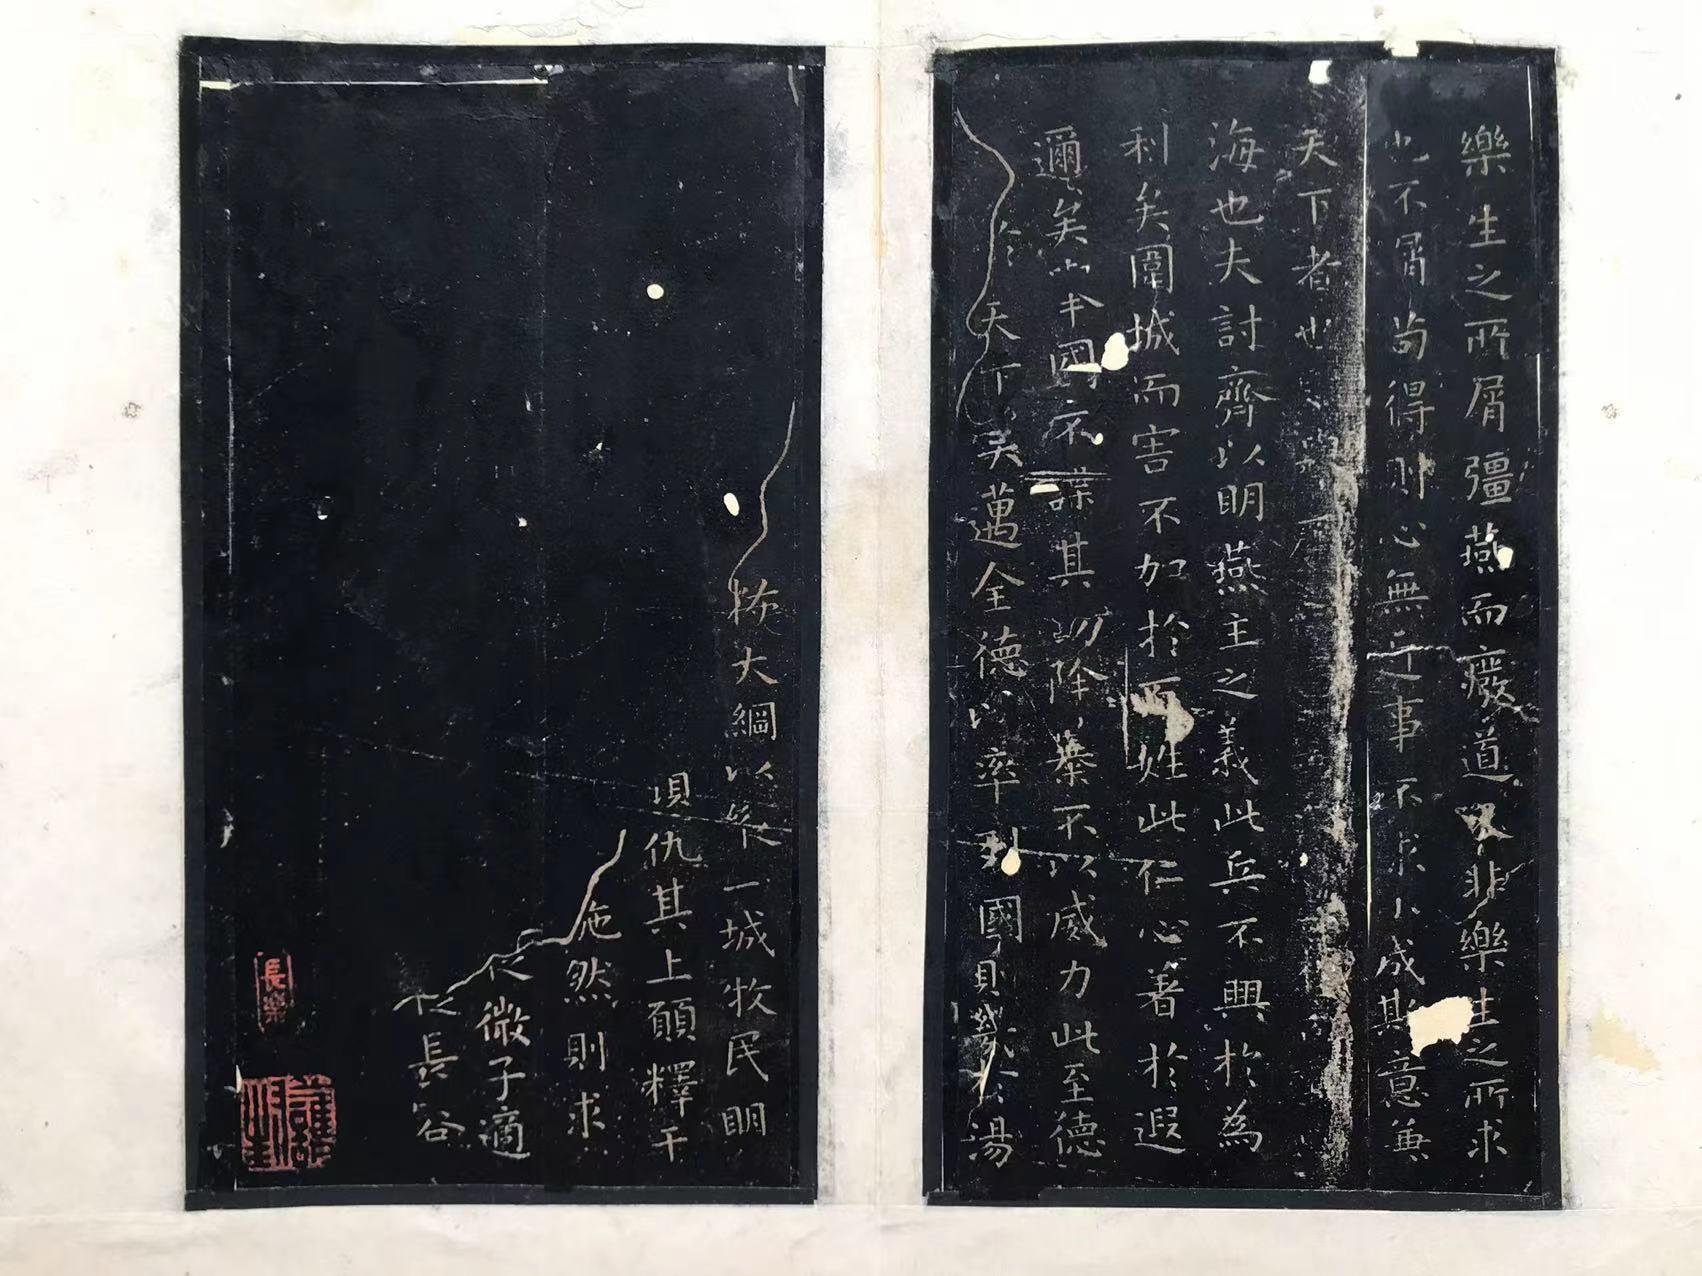 樂生之所屑彊燕而廢道又非樂生之所求
也不屑苟得則心無近事不求小成斯意兼
天下者也
海也夫討齊以明燕主之義此兵不興於為
利矣圍城而害不加於百姓此仁心著於遐
邇矣國不謀其功除暴不以威力此至德
於天下矣邁全德以率列國則幾於湯
大綱以縱一城牧民明
仇其上願釋干
施然則求
微子適
長容
長樂